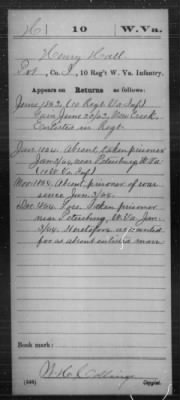 H 10 W. Va.
Henry Hall
Pvt, Co. I, 10 Reg't W. Va. Infantry.
Appears on Returns as follows:
June 1862 (10 Regt Va Inf)
Gain June 20/62
Enlisted in Regt
Jan 1864. Absent, taken prisoner
Jan 3/64 near Petersburg W. Va
(10 W. Va Inf)
Nov 1864. Absent prisoner of war
since Jan. 3/64.
Dec 1864. Loss. Taken prisoner
near Petersburg, W. Va. Jan.
3/64. Heretofore accounted
for as absent enlisted man
Book mark:
(546) Copyist.